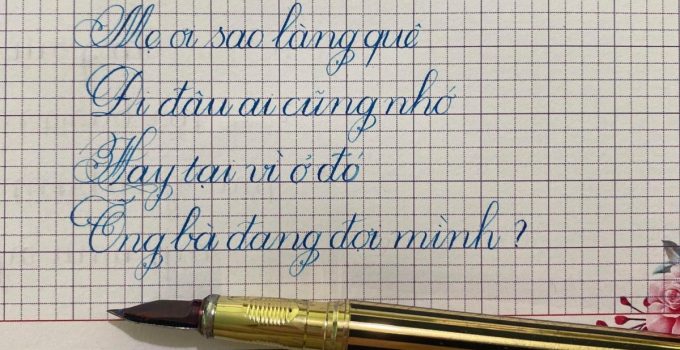 Mẹ ơi sao làng quê
Đi đâu ai cũng nhớ
Hay tại vì ở đó
Ông bà đang đợi mình ?